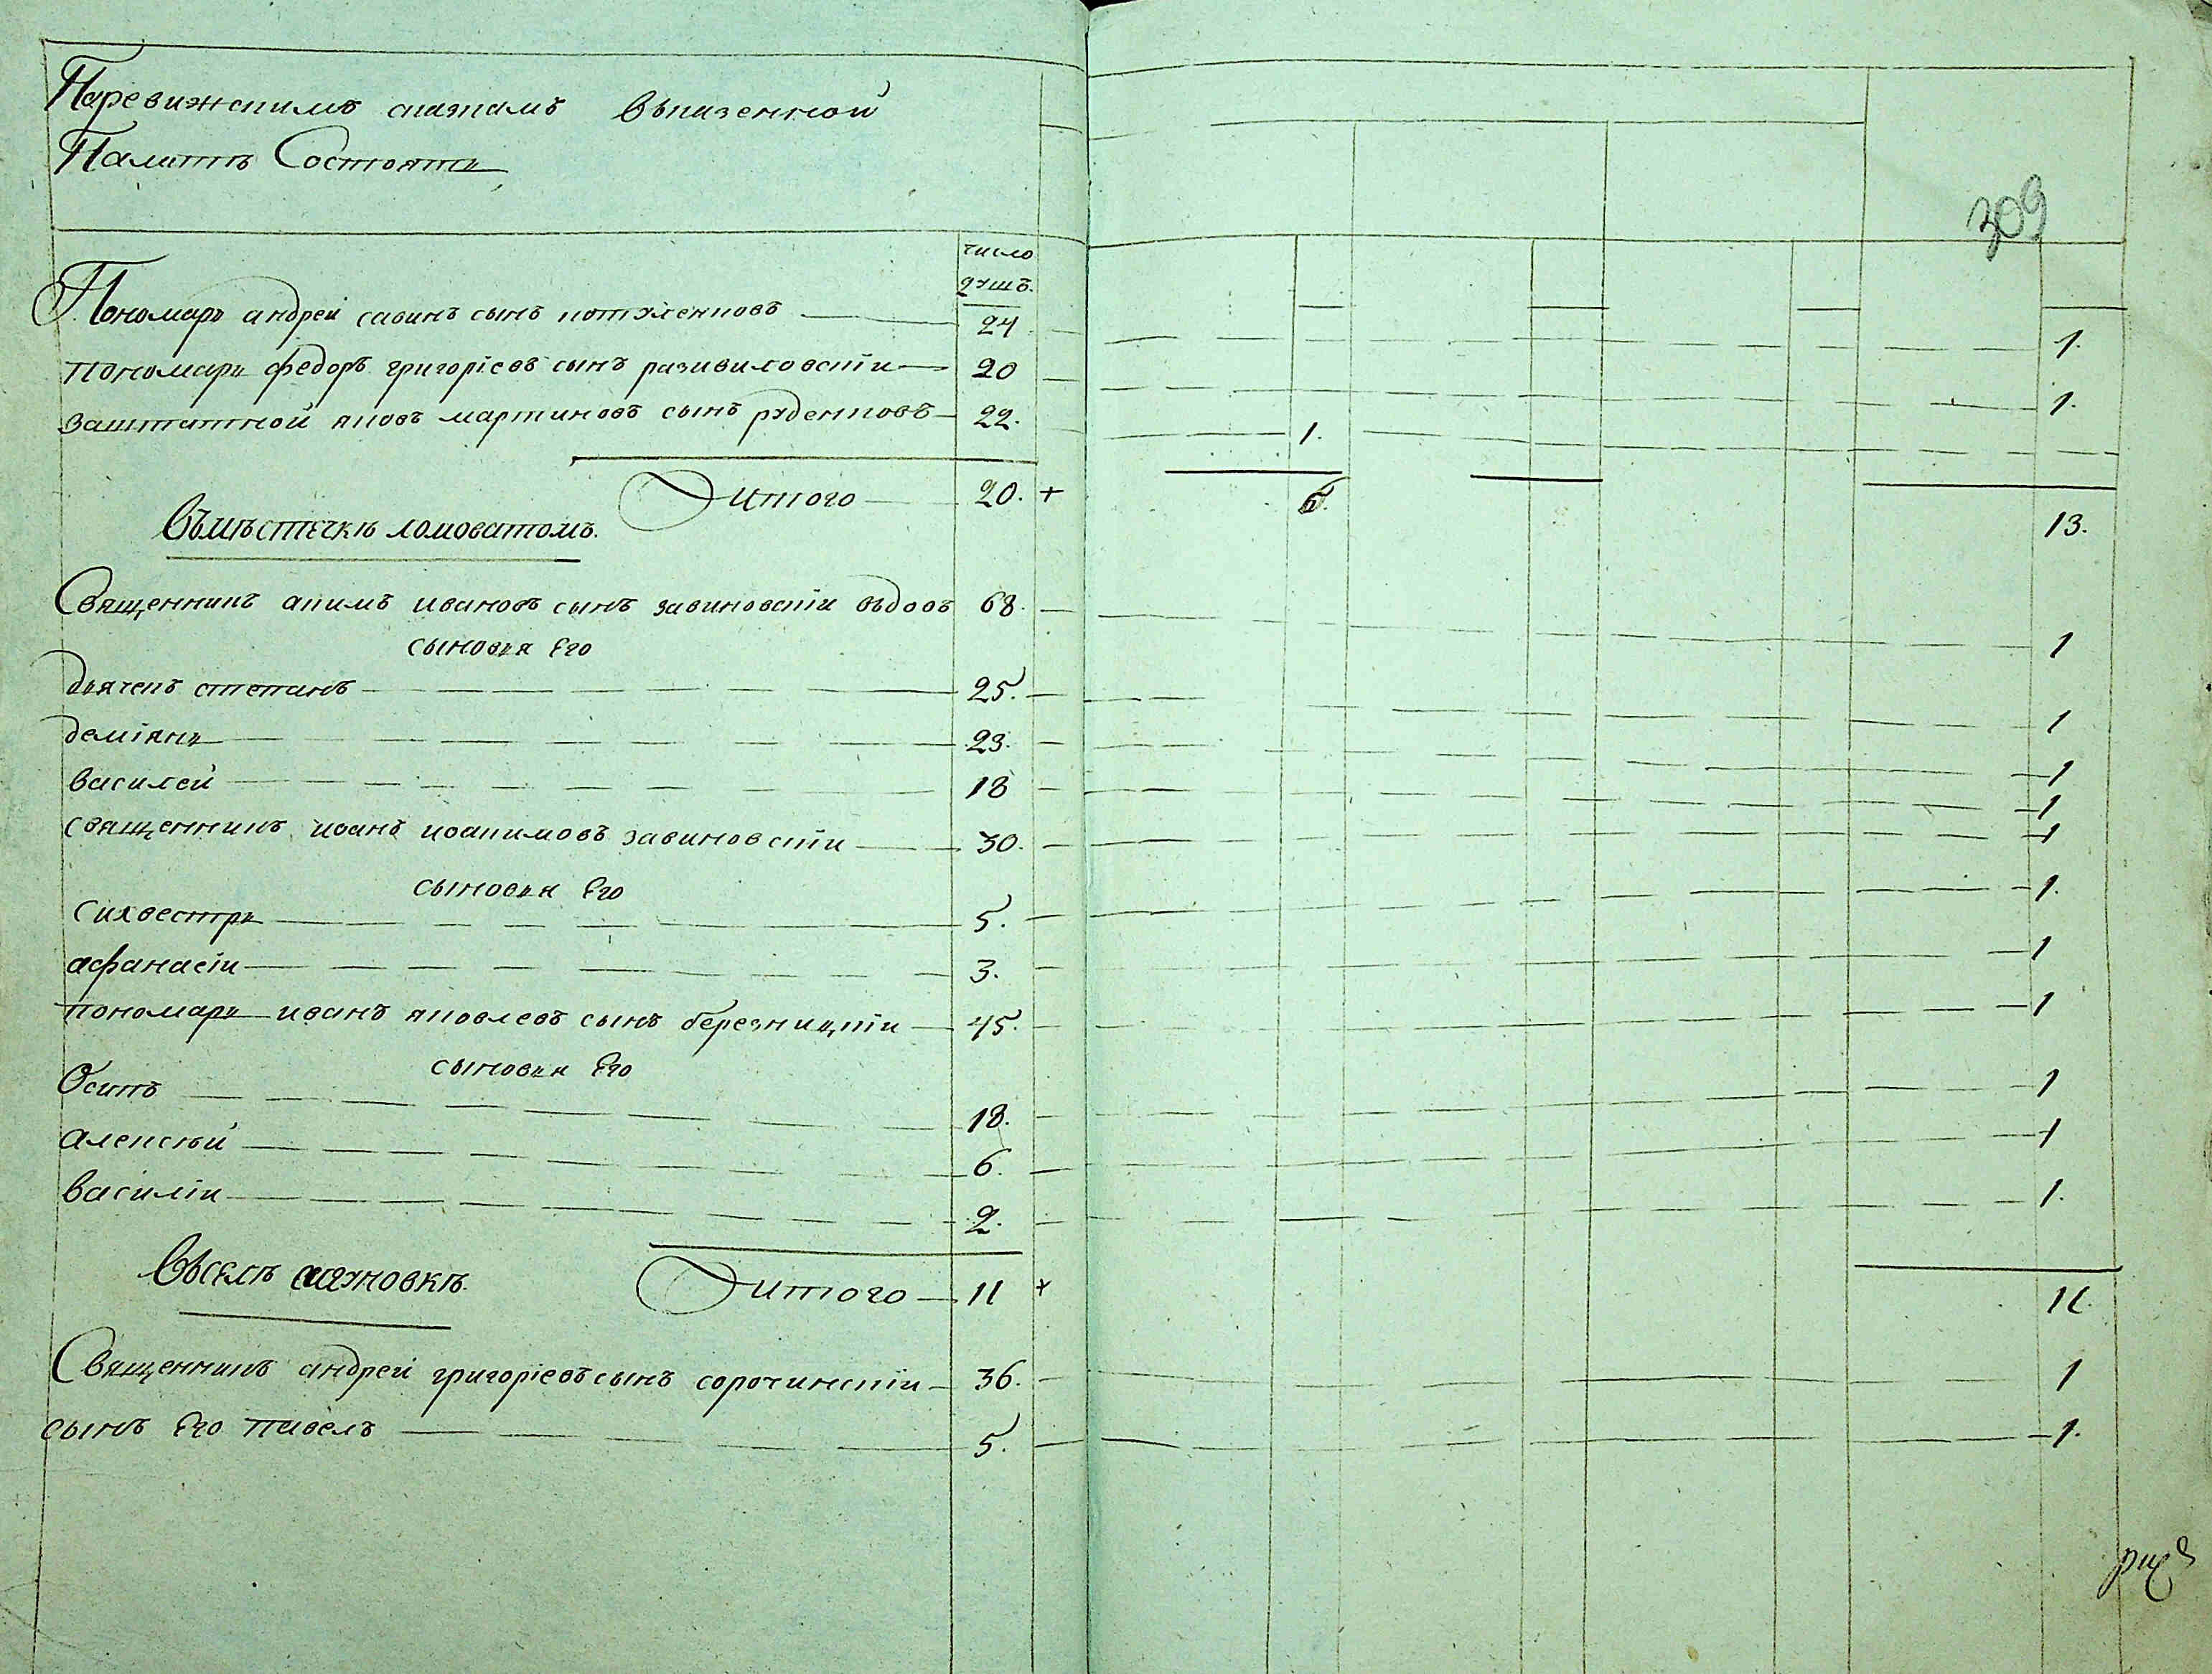 Паревижскимъ скаскамъ вьказенной
Палатъ Состоятъ
309
число
душъ.
Пономарь андрей савинъ сынъ потуленковъ 24 1.
пономарь федоръ григоріевъ сынъ разивиловскіи 20 1.
заштатной яковъ мартиновъ сынъ руденковъ 22. 1.
Итого 20. + 6. 13.
Въмѣстечкѣ ломоватомъ.
Священникъ акимъ ивановъ сынъ завиновскіи вьдовъ 68. 1
сыновья Его
дьячекъ степанъ 25. 1
деміянъ 23. 1
василей 18 1
священникъ иванъ иоакимовъ завиновскіи 30. 1
сыновья Его
силвестръ 5. 1.
афанасіи 3. 1
пономарь иванъ яковлевъ сынъ березницкіи 45. 1
сыновья Его
Осипъ 18. 1
алексѣй 6. 1
василіи 2. 1.
Итого 11 + 11.
Священникъ андрей григоріевъ сынъ сорочинскіи 36. 1
сынъ Его павелъ 5. 1.